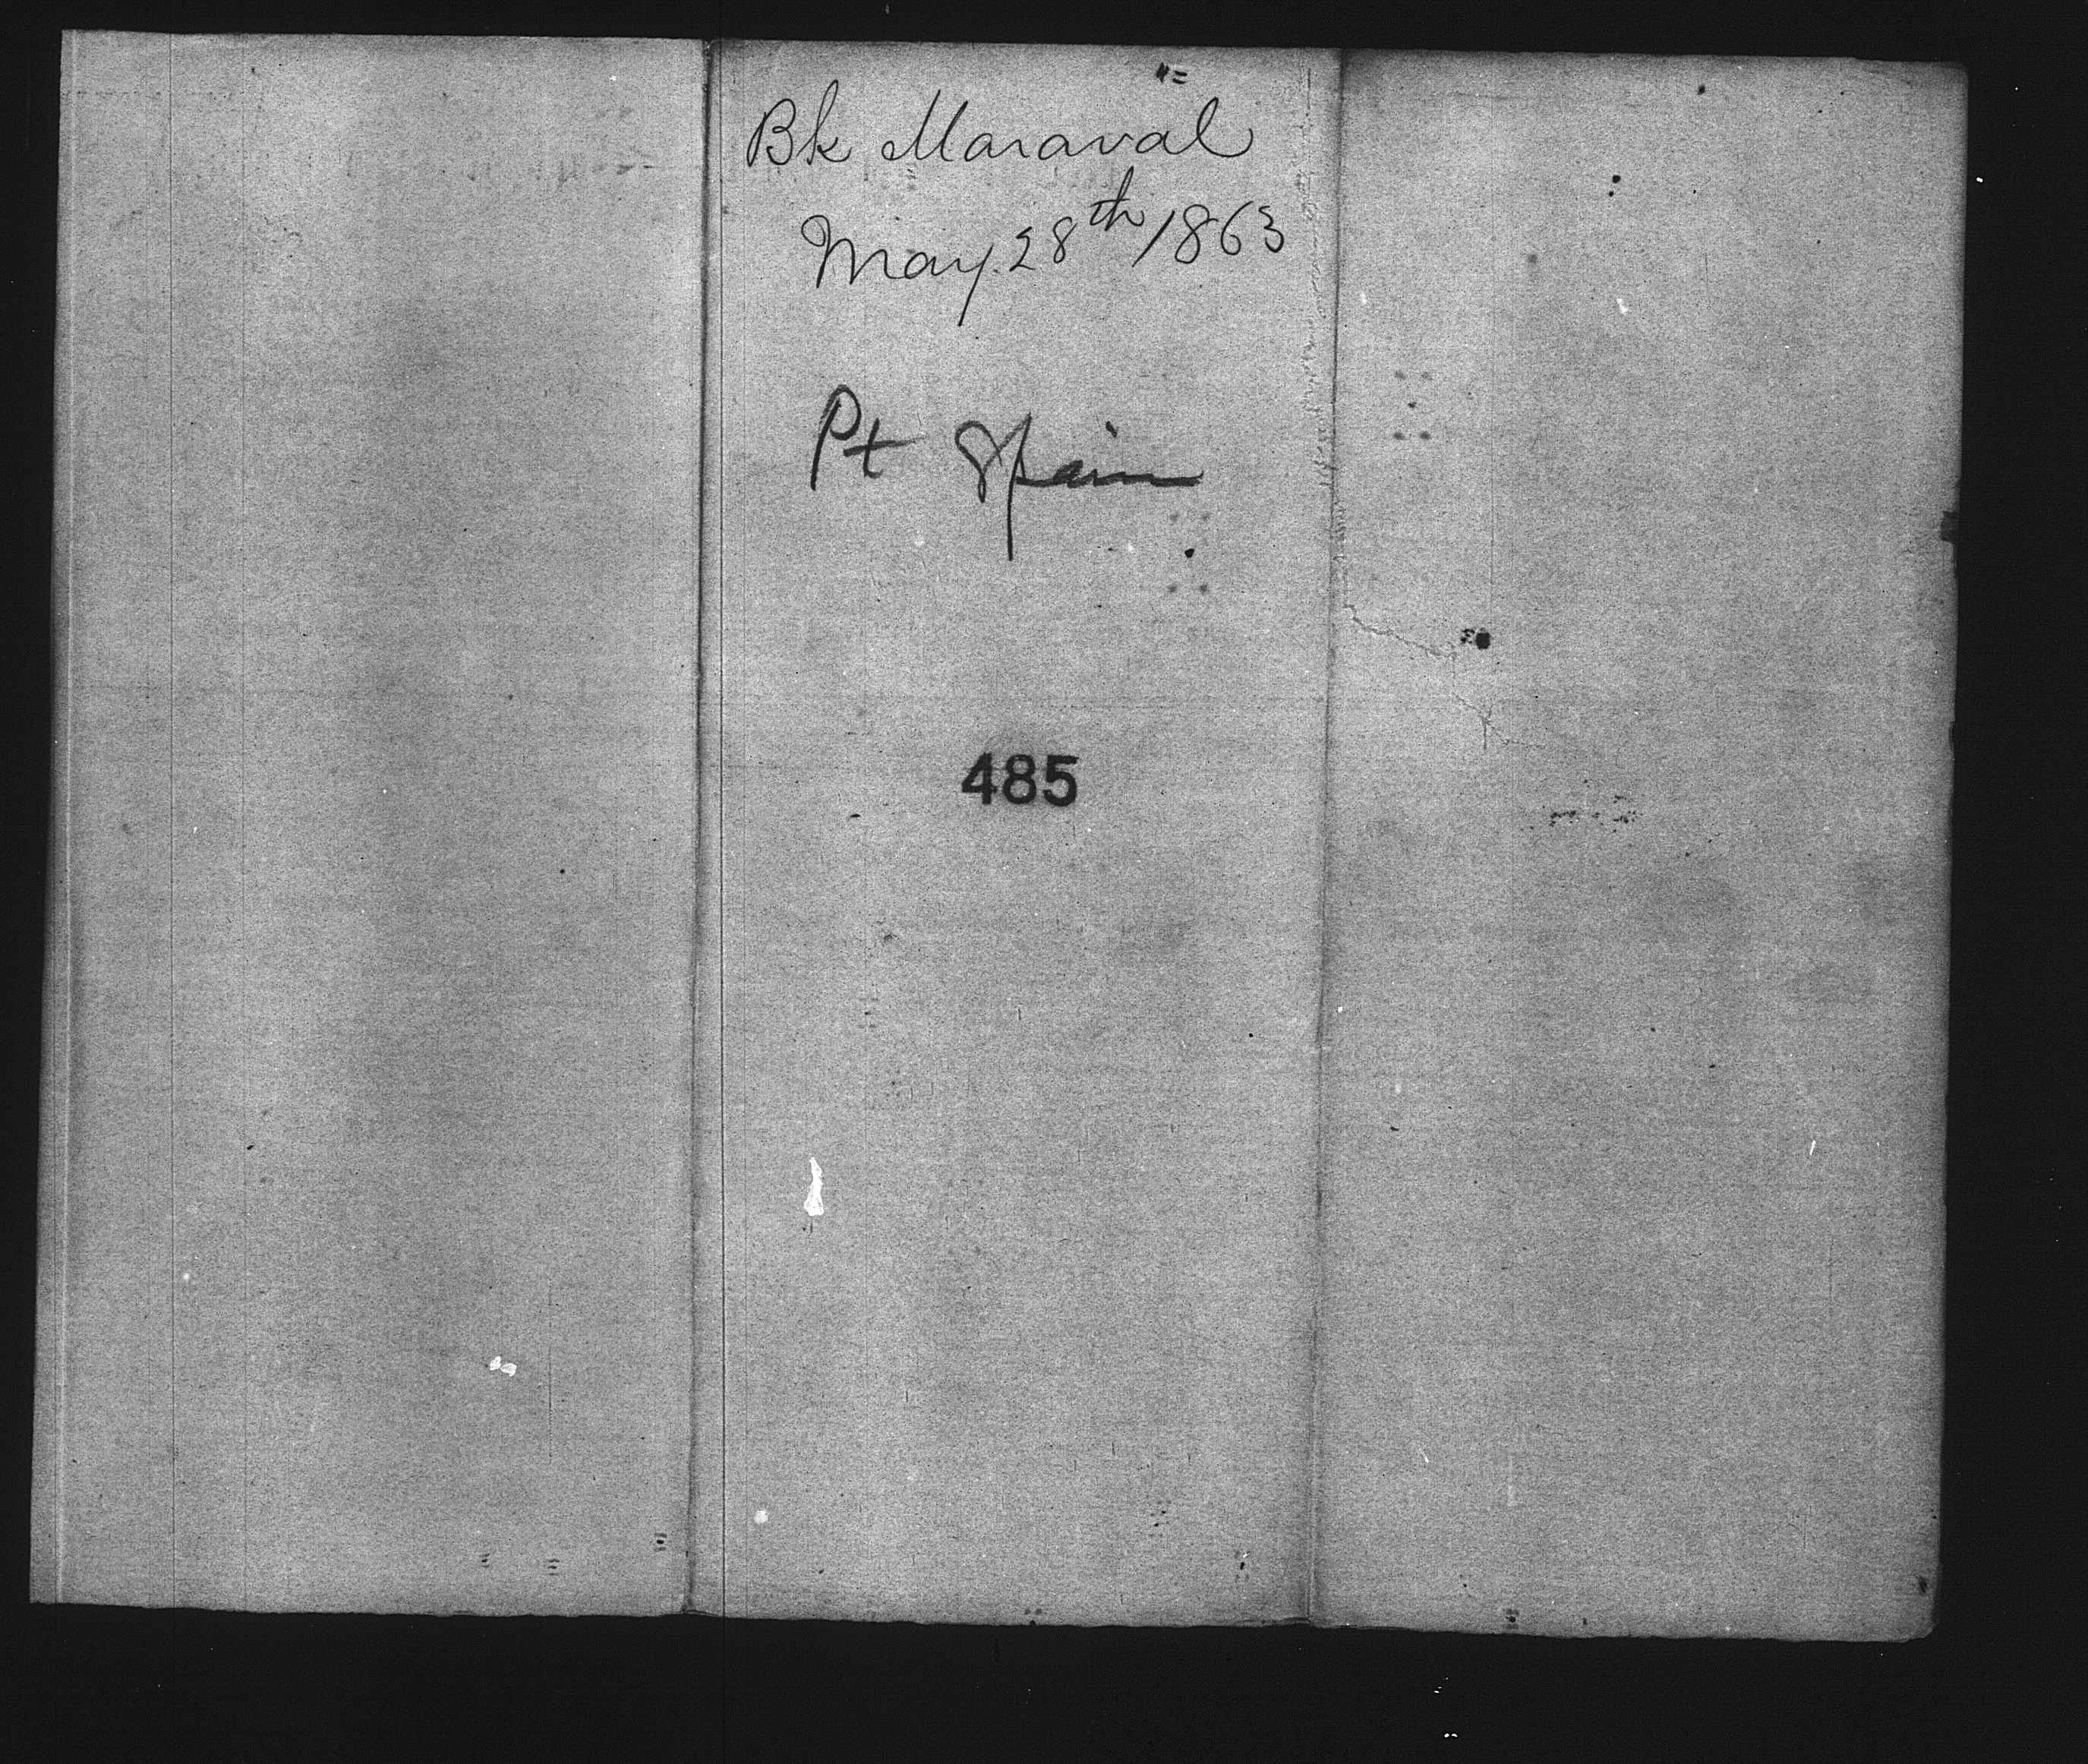 Bk Maraval
May 28th/1863
Pt Spain
485